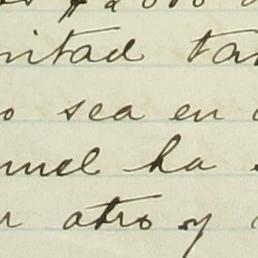 $2000
mitad tan
o sea en
nuel ha
r otro y